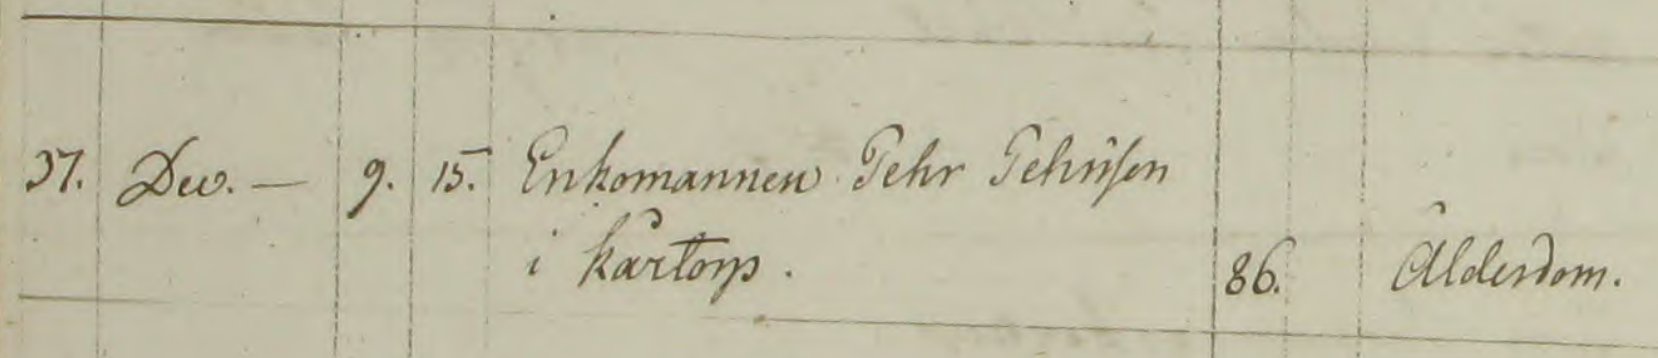 37. Dec. — 9. 15. Enkomannen Pehr Pehrsson
i Kartorp. 86. Ålderdom.